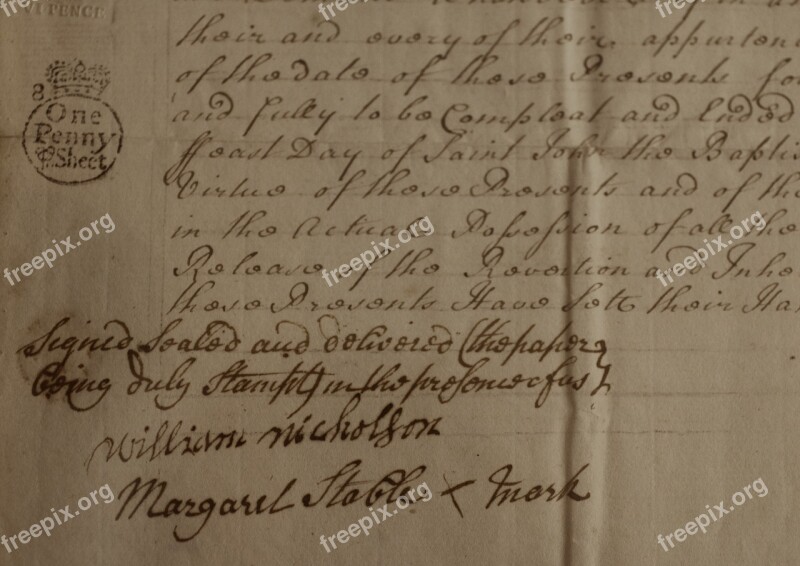 VI PENCE
their and every of their appurten
of the date of these Presents fo
and fully to be Compleat and Ended
8
One
Penny
P. Sheet
ffeast Day of Saint John the Baptis
Virtue of these Presents and of th
in the Actuall Possession of all the
Release of the Revertion and Inhe
these Presents Have Sett their Ha
Signed Sealed and delivered (the paper
being duly Stampt) in the presence of us
William Nicholson
Margaret Stable × mark
freepix.org
freepix.org
freepix.org
freepix.org
freepix.org
freepix.org
freepix.org
freepix.org
freepix.org